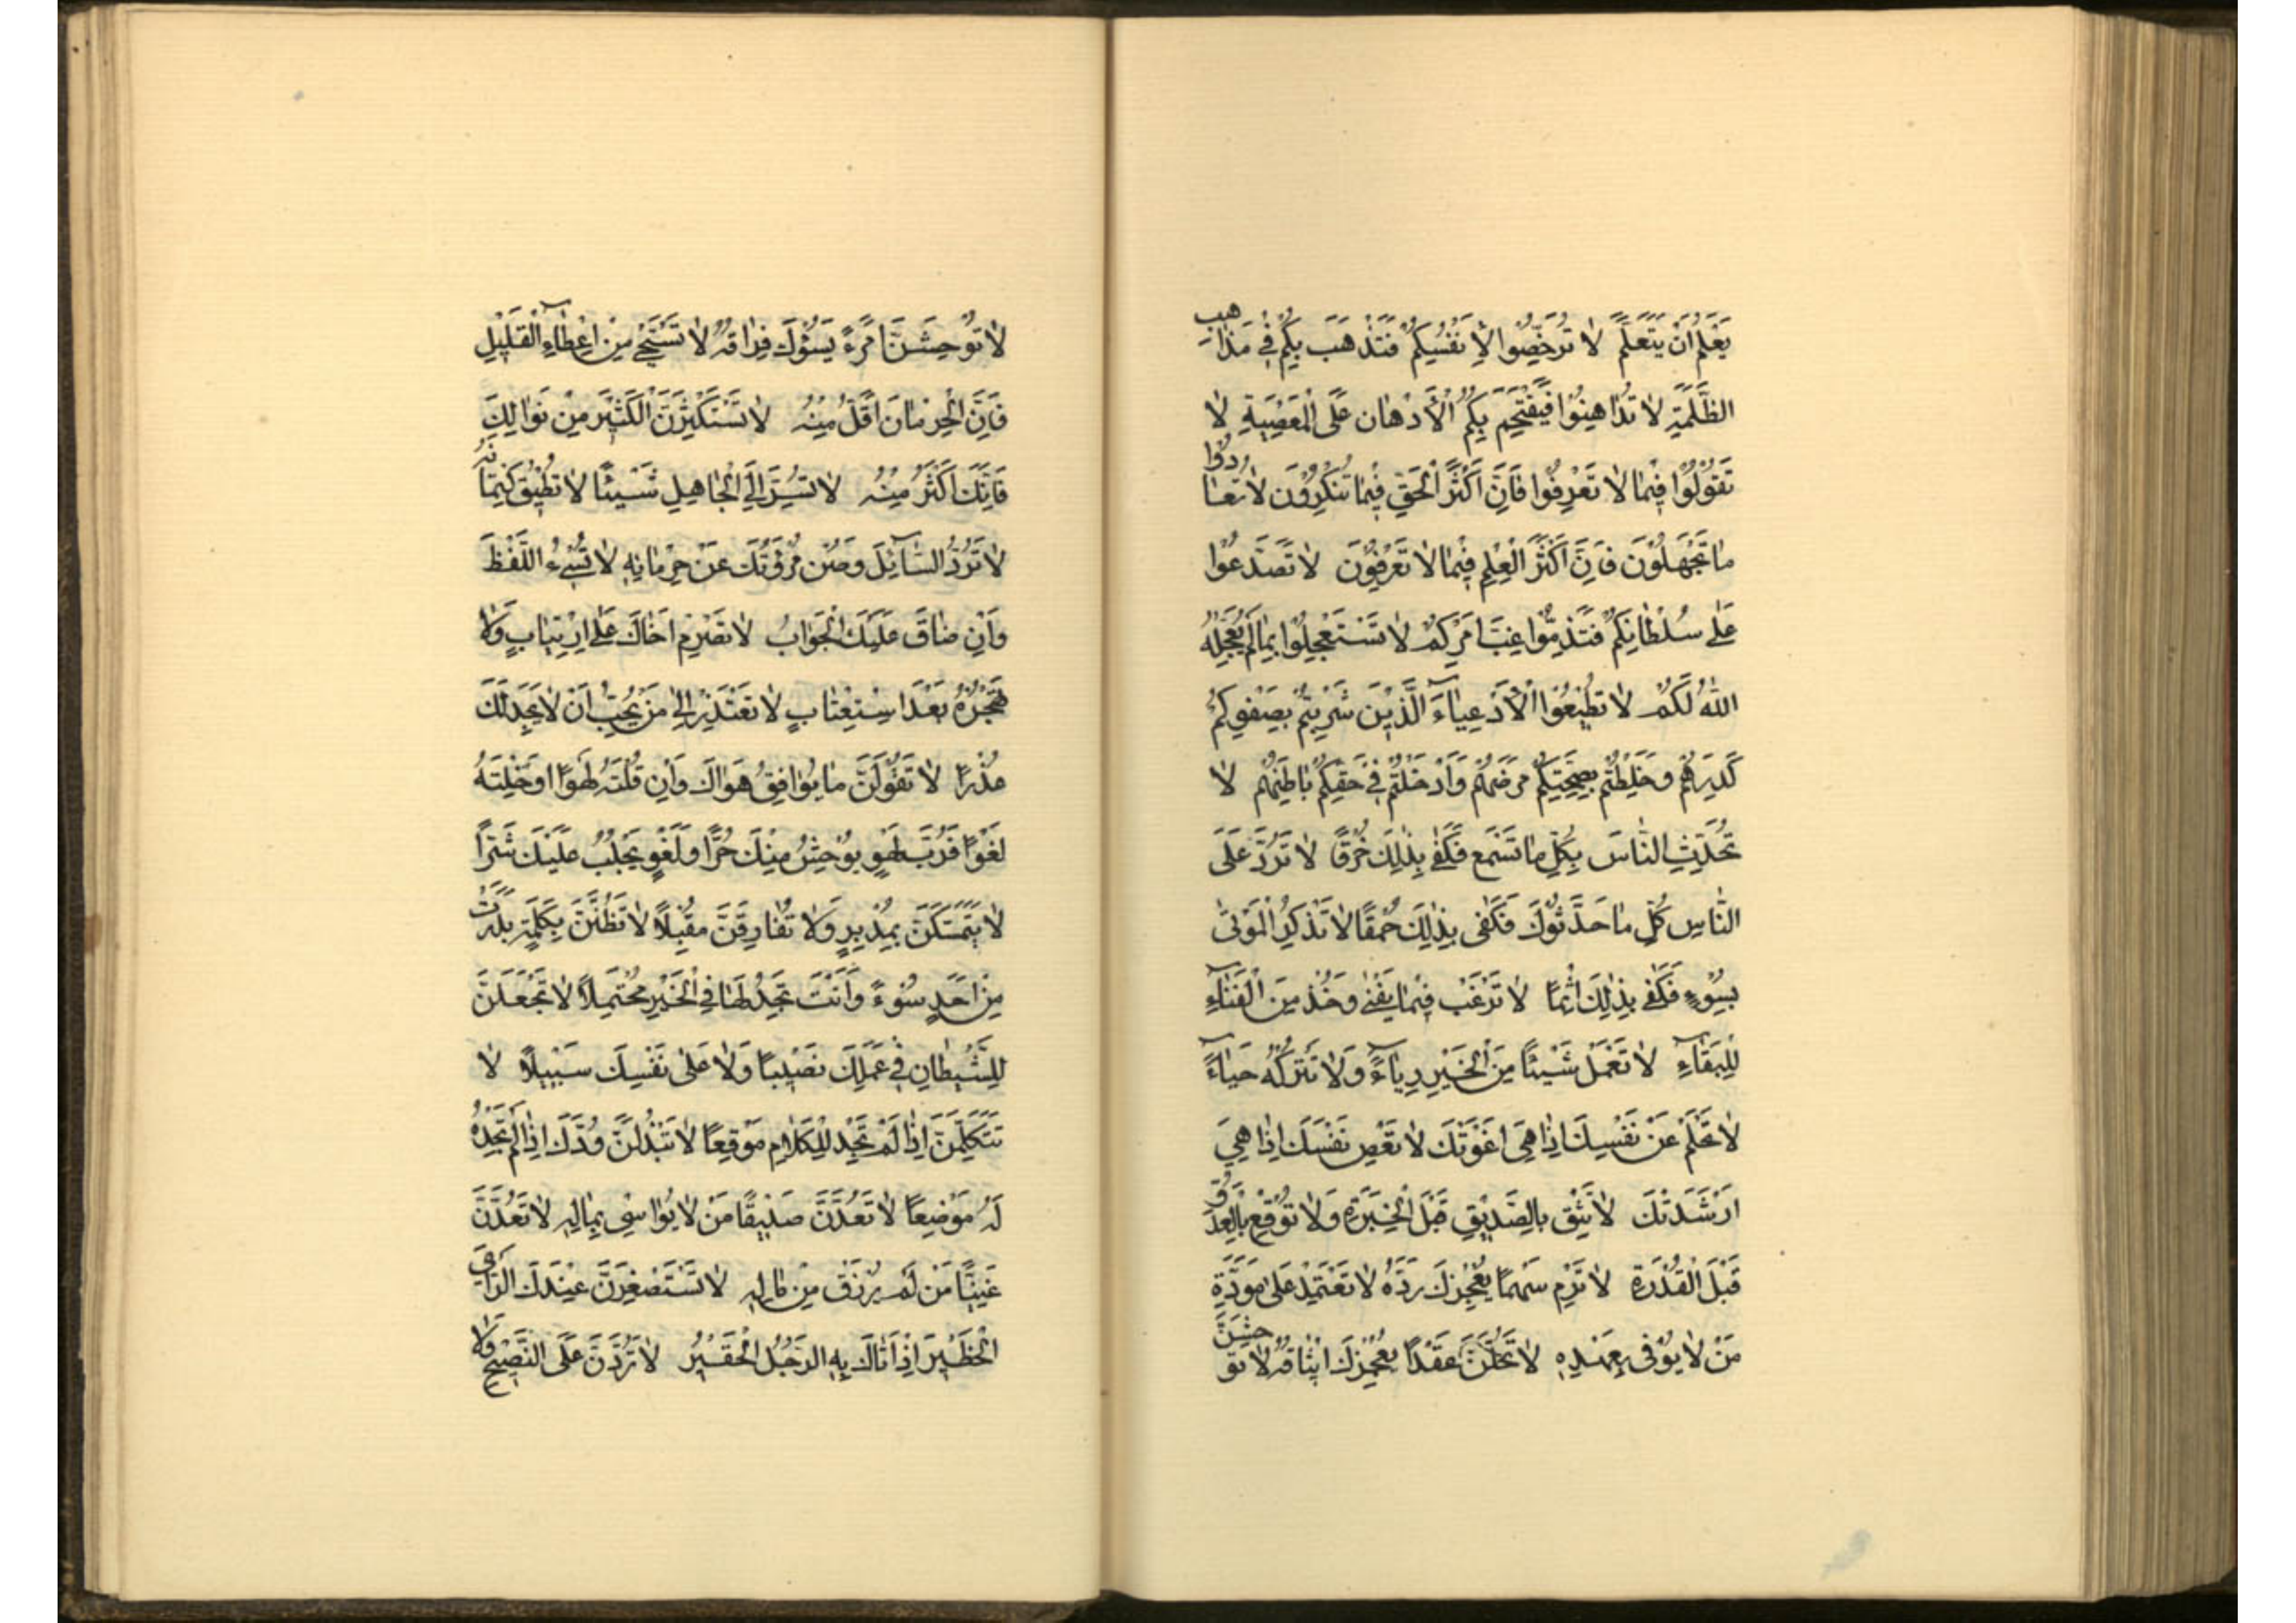 يَعْلَمْ اَنْ يَتَعَلَّمَ لا تُرَخِّصُوا لِاَنْفُسِكُمْ فَتَذْهَبَ بِكُمْ فِى مَذاهِبِ
الظَّلَمَةِ لا تُداهِنُوا فَيَقْتَحِمَ بِكُمُ الْاِدْهان عَلَى الْمَعْصِيَةِ لا
تَقُولُوا فِيما لا تَعْرِفُوا فَاِنَّ اَكْثَرَ الْحَقِّ فِيما تُنْكِرُونَ لا تُعادُوا
ما تَجْهَلُونَ فَاِنَّ اَكْثَرَ الْعِلْمِ فِيما لا تَعْرِفُونَ لا تَصَدَّعُوا
عَلى سُلْطانِكُمْ فَتَذِمُّوا غِبَّ اَمْرِكُمْ لا تَسْتَعْجِلُوا بِما لَمْ يُعَجِّلْهُ
اللهُ لَكُمْ لا تُطِيعُوا الْاَدْعِياءَ الَّذِينَ شَرِبْتُمْ بِصَفْوِكُمْ
كَدِرَهُمْ وَخَلَطْتُمْ بِصِحَّتِكُمْ مَرَضَهُمْ وَاَدْخَلْتُمْ فِى حَقِّكُمْ باطِلَهُمْ لا
تُحَدِّثِ النّاسَ بِكُلِّ ما تَسْمَع فَكَفى بِذلِكَ خُرْقًا لا تَرُدَّ عَلَى
النّاسِ كُلِّ ما حَدَّثُوكَ فَكَفى بِذلِكَ حُمْقًا لا تَذْكُرِ الْمَوْتى
بِسُوءٍ فَكَفى بِذلِكَ اِثْمًا لا تَرْغَبْ فِيما يَفْنى وَخُذْ مِنَ الْفَناءِ
لِلْبَقاءِ لا تَعْمَلْ شَيْئًا مِنَ الْخَيْرِ رِياءً وَلا تَتْرُكْهُ حَياءً
لا تَحْلُمْ عَنْ نَفْسِكَ اِذا هِىَ اَغْوَتْكَ لا تَعْصِ نَفْسَكَ اِذا هِىَ
اَرْشَدَتْكَ لا تَثِقْ بِالصَّدِيقِ قَبْلَ الْخِبْرَةِ وَلا تُوقِعْ بِالْعَدُوِّ
قَبْلَ الْقُدْرَةِ لا تَرْمِ سَهْمًا يُعْجِزُكَ رَدُّهُ لا تَعْتَمِدْ عَلى مَوَدَّةِ
مَنْ لا يُوفى بِعَهْدِهِ لا تَحُلَّنَّ عَقْدًا يُعْجِزُكَ ايثاقُهُ لا تُوحِشَنَّ
لا تُوحِشَنَّ امْرَءً يَسُؤُكَ فِراقُهُ لا تَسْتَحْىِ مِنْ اِعْطاءِ الْقَلِيلِ
فَاِنَّ الْحِرْمانَ اَقَلُّ مِنْهُ لا تَسْتَكْثِرَنَّ الْكَثِيرَ مِنْ نَوالِكَ
فَاِنَّكَ اَكْثَرُ مِنْهُ لا تُسِرَّ اِلَى الْجاهِلِ شَيْئًا لا تُطِيقُ كِتْمانَهُ
لا تَرُدَّ السّائِلَ وَصُنْ مُرُوَّتَكَ عَنْ حِرْمانِهِ لا تُسِئِ اللَّفْظَ
وَاِنْ ضاقَ عَلَيْكَ الْجَوابُ لا تَصْرِمْ اَخاكَ عَلَى ارْتِيابٍ وَلا
تَهْجُرْهُ بَعْدَ اسْتِعْتابٍ لا تَعْتَذِرْ اِلى مَنْ يُحِبُّ اَنْ لا يَجِدَ لَكَ
عُذْرًا لا تَقُولَنَّ ما يُوافِقُ هَواكَ وَاِنْ قُلْتَهُ لَهْوًا اَوْ خِلْتَهُ
لَغْوًا فَرُبَّ لَهْوٍ يُوحِشُ مِنْكَ حُرًّا وَلَغْوٍ يَجْلِبُ عَلَيْكَ شَرًّا
لا تَمَسَّكَنَّ بِمُدْبِرٍ وَلا تُفارِقَنَّ مُقْبِلًا لا تَظُنَّنَّ بِكَلِمَةٍ بَدَرَتْ
مِنْ اَحَدٍ سُوءً وَاَنْتَ تَجِدُ لَها فِى الْخَيْرِ مُحْتَمِلًا لا تَجْعَلَنَّ
لِلشَّيْطانِ فِى عَمَلِكَ نَصِيبًا وَلا عَلى نَفْسِكَ سَبِيلًا لا
تَتَكَلَّمَنَّ اِذا لَمْ تَجِدْ لِلْكَلامِ مَوْقِعًا لا تَبْذُلَنَّ وُدَّكَ اِذا لَمْ تَجِدْ
لَهُ مَوْضِعًا لا تَعُدَّنَّ صَدِيقًا مَنْ لا يُواسِى بِمالِهِ لا تَعُدَّنَّ
غَنِيًّا مَنْ لَمْ يُرْزَقْ مِنْ مالِهِ لا تَسْتَصْغِرَنَّ عِنْدَكَ الرَّاىَ
الْخَطِيرَ اِذا اَتاكَ بِهِ الرَّجُلُ الْحَقِيرُ لا تَرُدَّنَّ عَلَى النَّصِيحِ وَلا